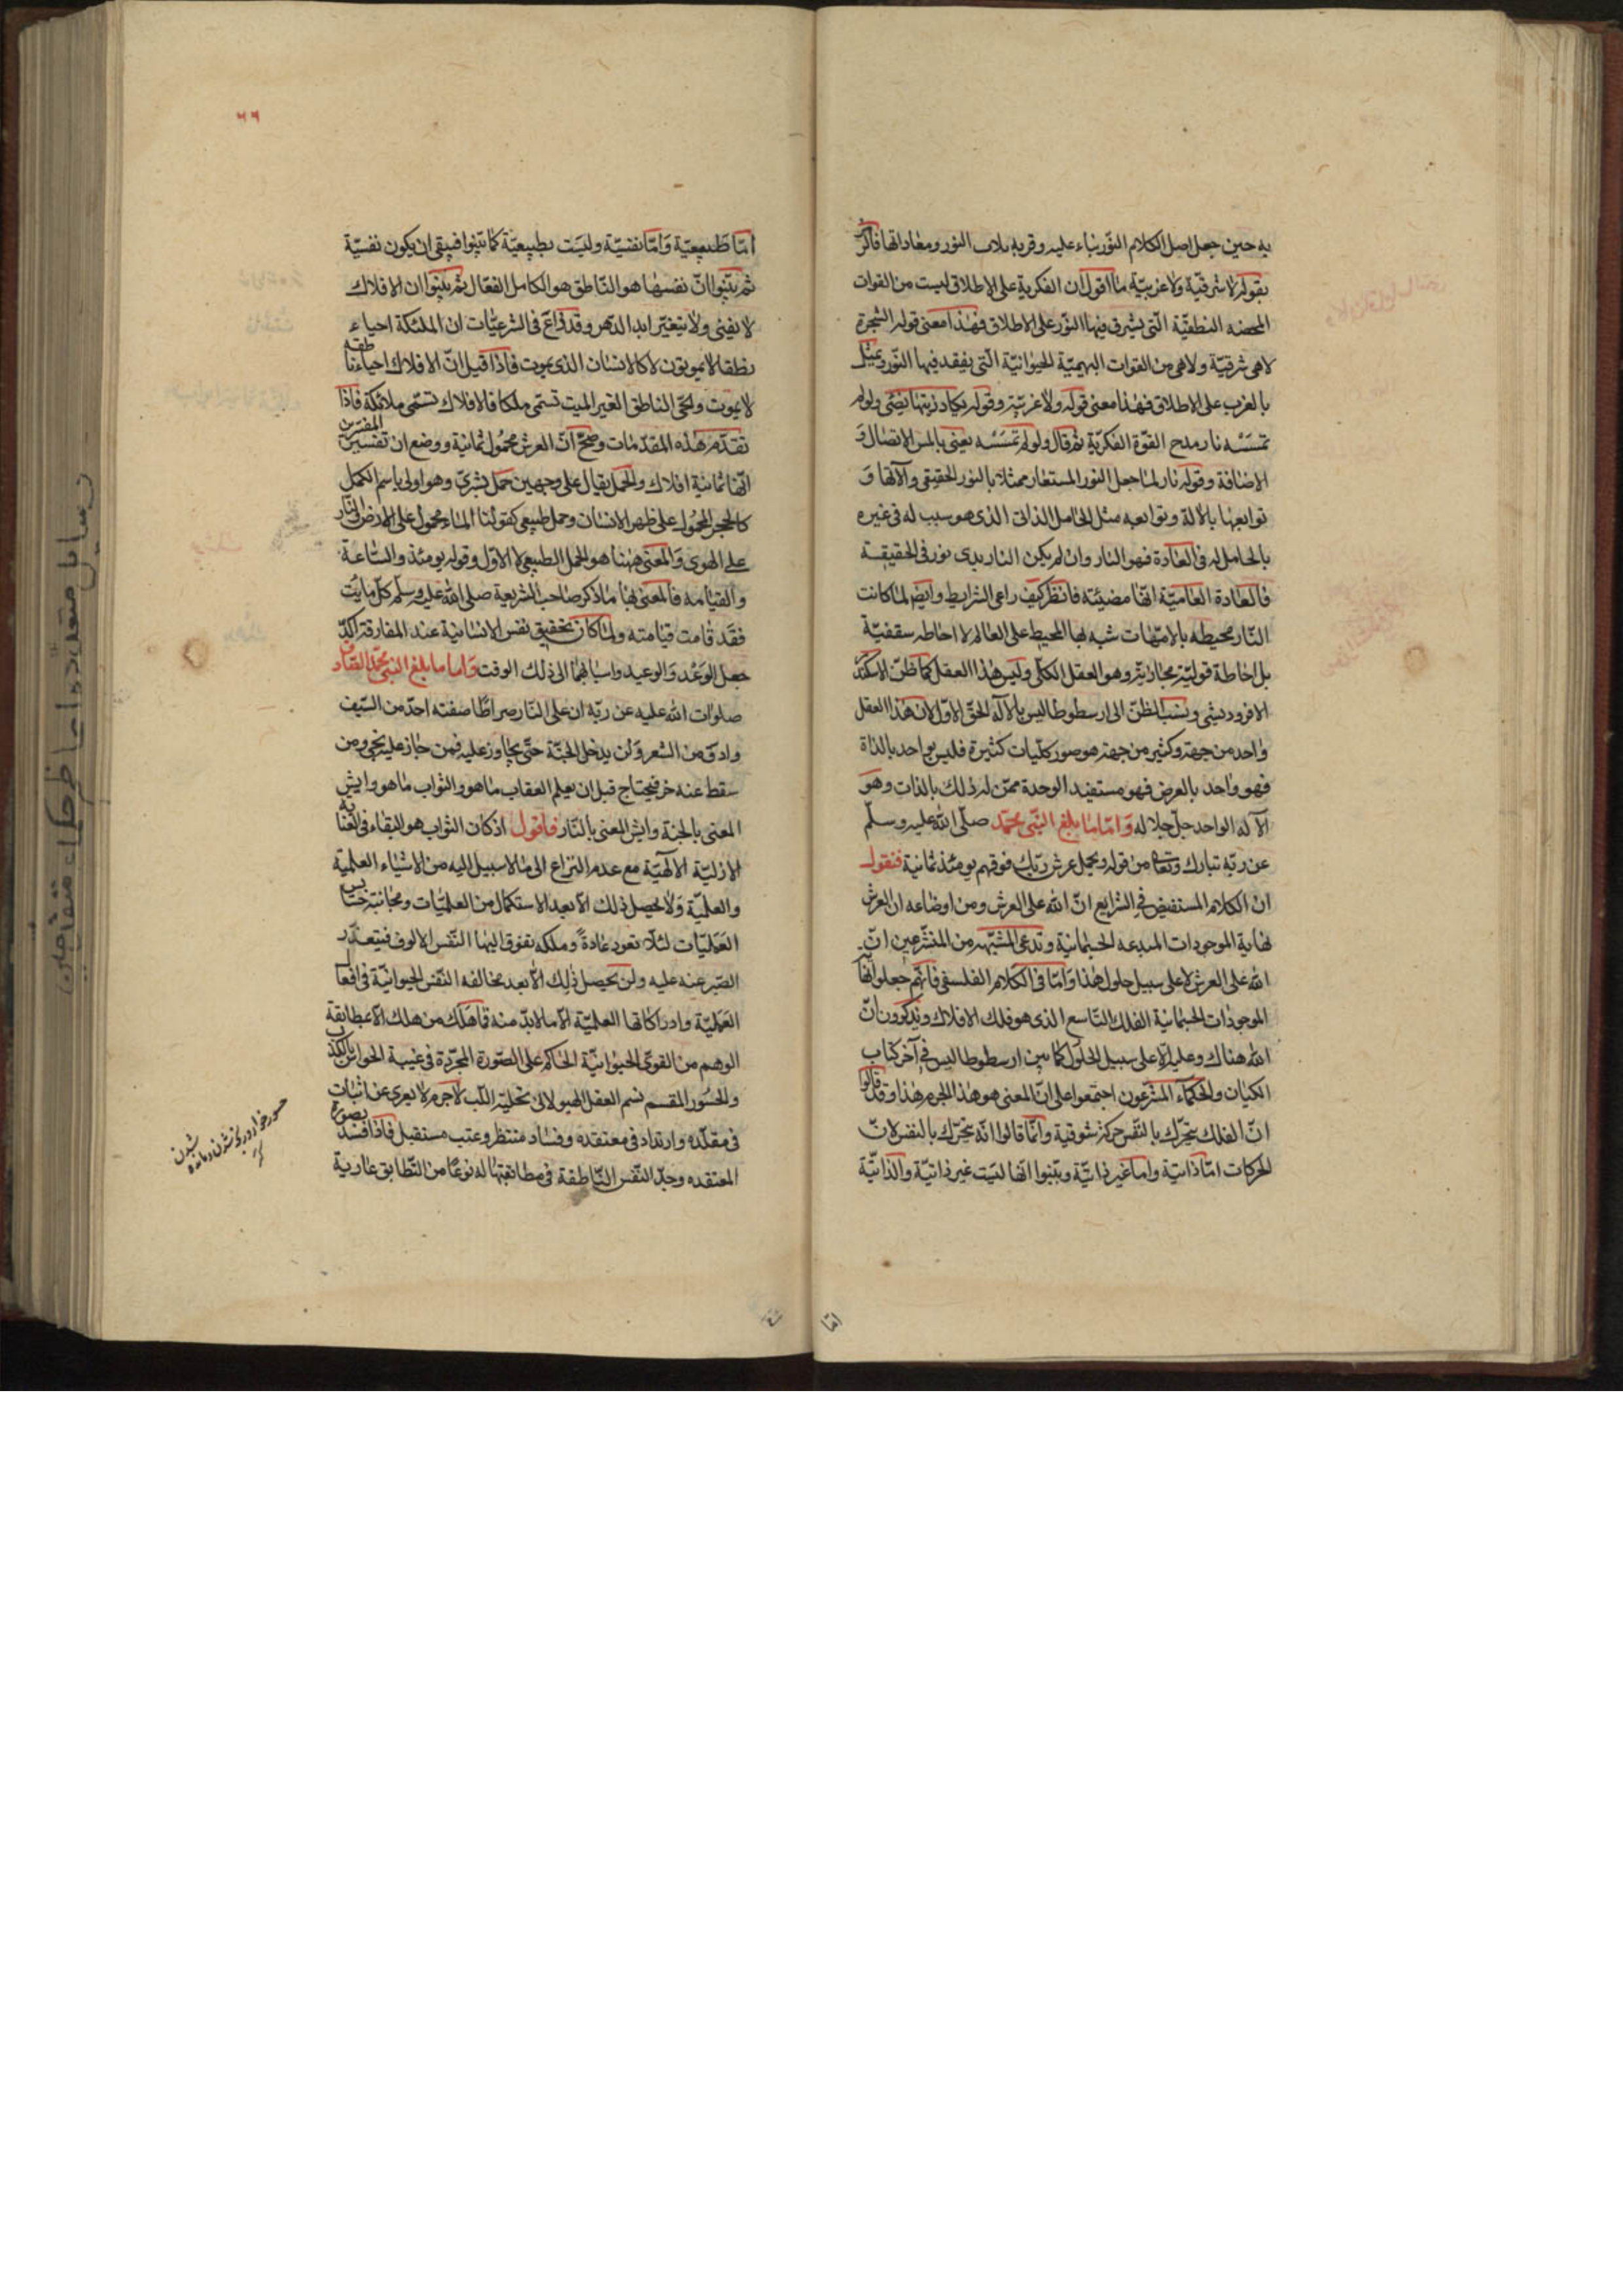 به حين جعل اصل الكلام النور بناء عليه وقربه بلاب النور ومعاداتها فالرمز
بقوله لا شرقية ولا غربية ما اقول ان الفكرية على الاطلاق ليست من القوات
المحضه النطقية التى يشرق فيها النور على الاطلاق فهذا معنى قوله الشجرة
لا هى شرقية ولا هى من القوات البهيمية الحيوانية التى يفقد فيها النور ويمثل
بالغرب على الاطلاق فهذا معنى قوله ولا غربية وقوله يكاد زيتها يضئ ولو لم
تمسسه نار مدح القوة الفكرية ثم قال ولو لم تمسسه يعنى بالمس الاتصال و
الاضافة وقوله نار لما جعل النور المستعار ممثلا بالنور الحقيقى وآلاتها و
توابعها بالالة وتوابعه مثل الحامل الذاتى الذى هو سبب له فى غيره
بالحامل له فى العادة فهو النار وان لم يكن النار بذى نور فى الحقيقة
فالعادة العامية انها مضيئة فانظر كيف راعى الشرايط وايضا لما كانت
النار محيطه بالامهات شبه بها المحيط على العالم لا احاطه سقفية
بل احاطة قولية مجازية وهو العقل الكلى وليس هذا العقل كما ظن الاسكندر
الافروديسى ونسب الظن الى ارسطوطاليس بالآله الحق الاول لان هذا العقل
واحد من جهة وكثير من جهة هو صور كليات كثيرة فليس بواحد بالذات
فهو واحد بالعرض فهو مستفيد الوحدة ممن له ذلك بالذات وهو
الآله الواحد جل جلاله واما ما بلغ النبى محمد صلى الله عليه وسلم
عن ربه تبارك وتعالى من قوله ويحمل عرش ربك فوقهم يومئذ ثمانية فنقول
ان الكلام المستفيض فى الشرايع ان الله على العرش ومن اوضاعه ان العرش
نهاية الموجودات المبدعه الجسمانية وتدعى المشبهه من المتشرعين ان
الله على العرش لا على سبيل حلول هذا واما فى الكلام الفلسفى فانهم جعلوا نهاية
الموجودات الجسمانية الفلك التاسع الذى هو فلك الافلاك ويذكرون ان
الله هناك وعليه لا على سبيل الحلول كما بين ارسطوطاليس فى آخر كتاب
الكيان والحكماء المتشرعون اجتمعوا على ان المعنى هو هذا الجرم هذا وقد قالوا
ان الفلك يتحرك بالنفس حركة شوقية وانما قالوا انه يتحرك بالنفس لان
الحركات اما ذاتية واما غير ذاتية وبينوا انها ليست غير ذاتية والذاتية
اما
٦٦
اما طبيعية واما نفسية وليست بطبيعية كما بينوا فبقى ان يكون نفسية
ثم بينوا ان نفسها هو الناطق هو الكامل الفعال ثم بينوا ان الافلاك
لا يفنى ولا يتغير ابدا الدهر وقد ذاع فى الشرعيات ان الملئكة احياء
نطقا لا يموتون لا كالانسان الذى يموت فاذا قيل ان الافلاك احياء ناطقه
لا يموت والحى الناطق الغير الميت تسمى ملكا فالافلاك تسمى ملائكة فاذا
تقدم هذه المقدمات وضح ان العرش محمول ثمانية ووضع ان تفسير المفسرين
انها ثمانية افلاك والحمل يقال على وجهين حمل بشرى وهو اولى باسم الحمل
كالحجر المحمول على ظهر الانسان وحمل طبيعى كقولنا الماء محمول على الارض والنار
على الهوى والمعنى ههنا هو الحمل الطبيعى لا الاول وقوله يومئذ والساعة
والقيامه فالمعنى بها ما ذكر صاحب الشريعة صلى الله عليه وسلم كل ما يت
فقد قامت قيامته ولما كان تحقيق نفس الانسانية عند المفارقة اكد
جعل الوعد والوعيد واسبابهما الى ذلك الوقت واما ما بلغ النبى محمد القادف
صلوات الله عليه عن ربه ان على النار صراطا صفته احد من السيف
وادق من الشعر ولن يدخل الجنة حتى يجاوز عليه فمن جاز عليه نجى ومن
سقط عنه خر فيحتاج قبل ان يعلم العقاب ما هو والثواب ما هو وايش
المعنى بالجنة وايش المعنى بالنار فاقول اذ كان الثواب هو البقاء فى العنايه
الازلية الالهية مع عدم النزاع الى ما لا سبيل اليه من الاشياء العلمية
والعلمية ولا يحصل ذلك الا بعد الاستكمال من العلميات ومجانبة خسايس
العمليات لئلا تعود عادة وملكه تفوق اليها النفس الالوف فيتعذر
الصبر عنه عليه ولن يحصل ذلك الا بعد مخالفه النفس الحيوانية فى افعالها
العملية وادراكاتها العلمية الا ما لا بد منه فما هلك من هلك الا بمطابقة
الوهم من القوى الحيوانية الحاكم على الصورة المجردة فى غيبة الحواس بالكذب
والحسور المقسم نسم العقل الهيولانى بتحلية اللب لاجرم لا يعرى عن اثبات
فى مقلده وارتداد فى معتقده وفساد منتظر وعتب مستقبل فاذا افسد بصورة
المعتقده وجد النفس الناطقة فى مطابقتها له نوعا من التطابق عارية